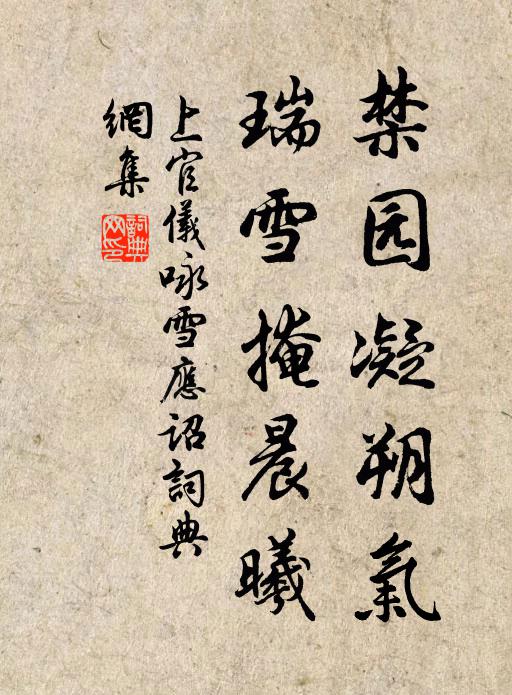 禁园凝朔氣
瑞雪掩晨曦
上官儀咏雪應詔詞典
網集
詞典
网印